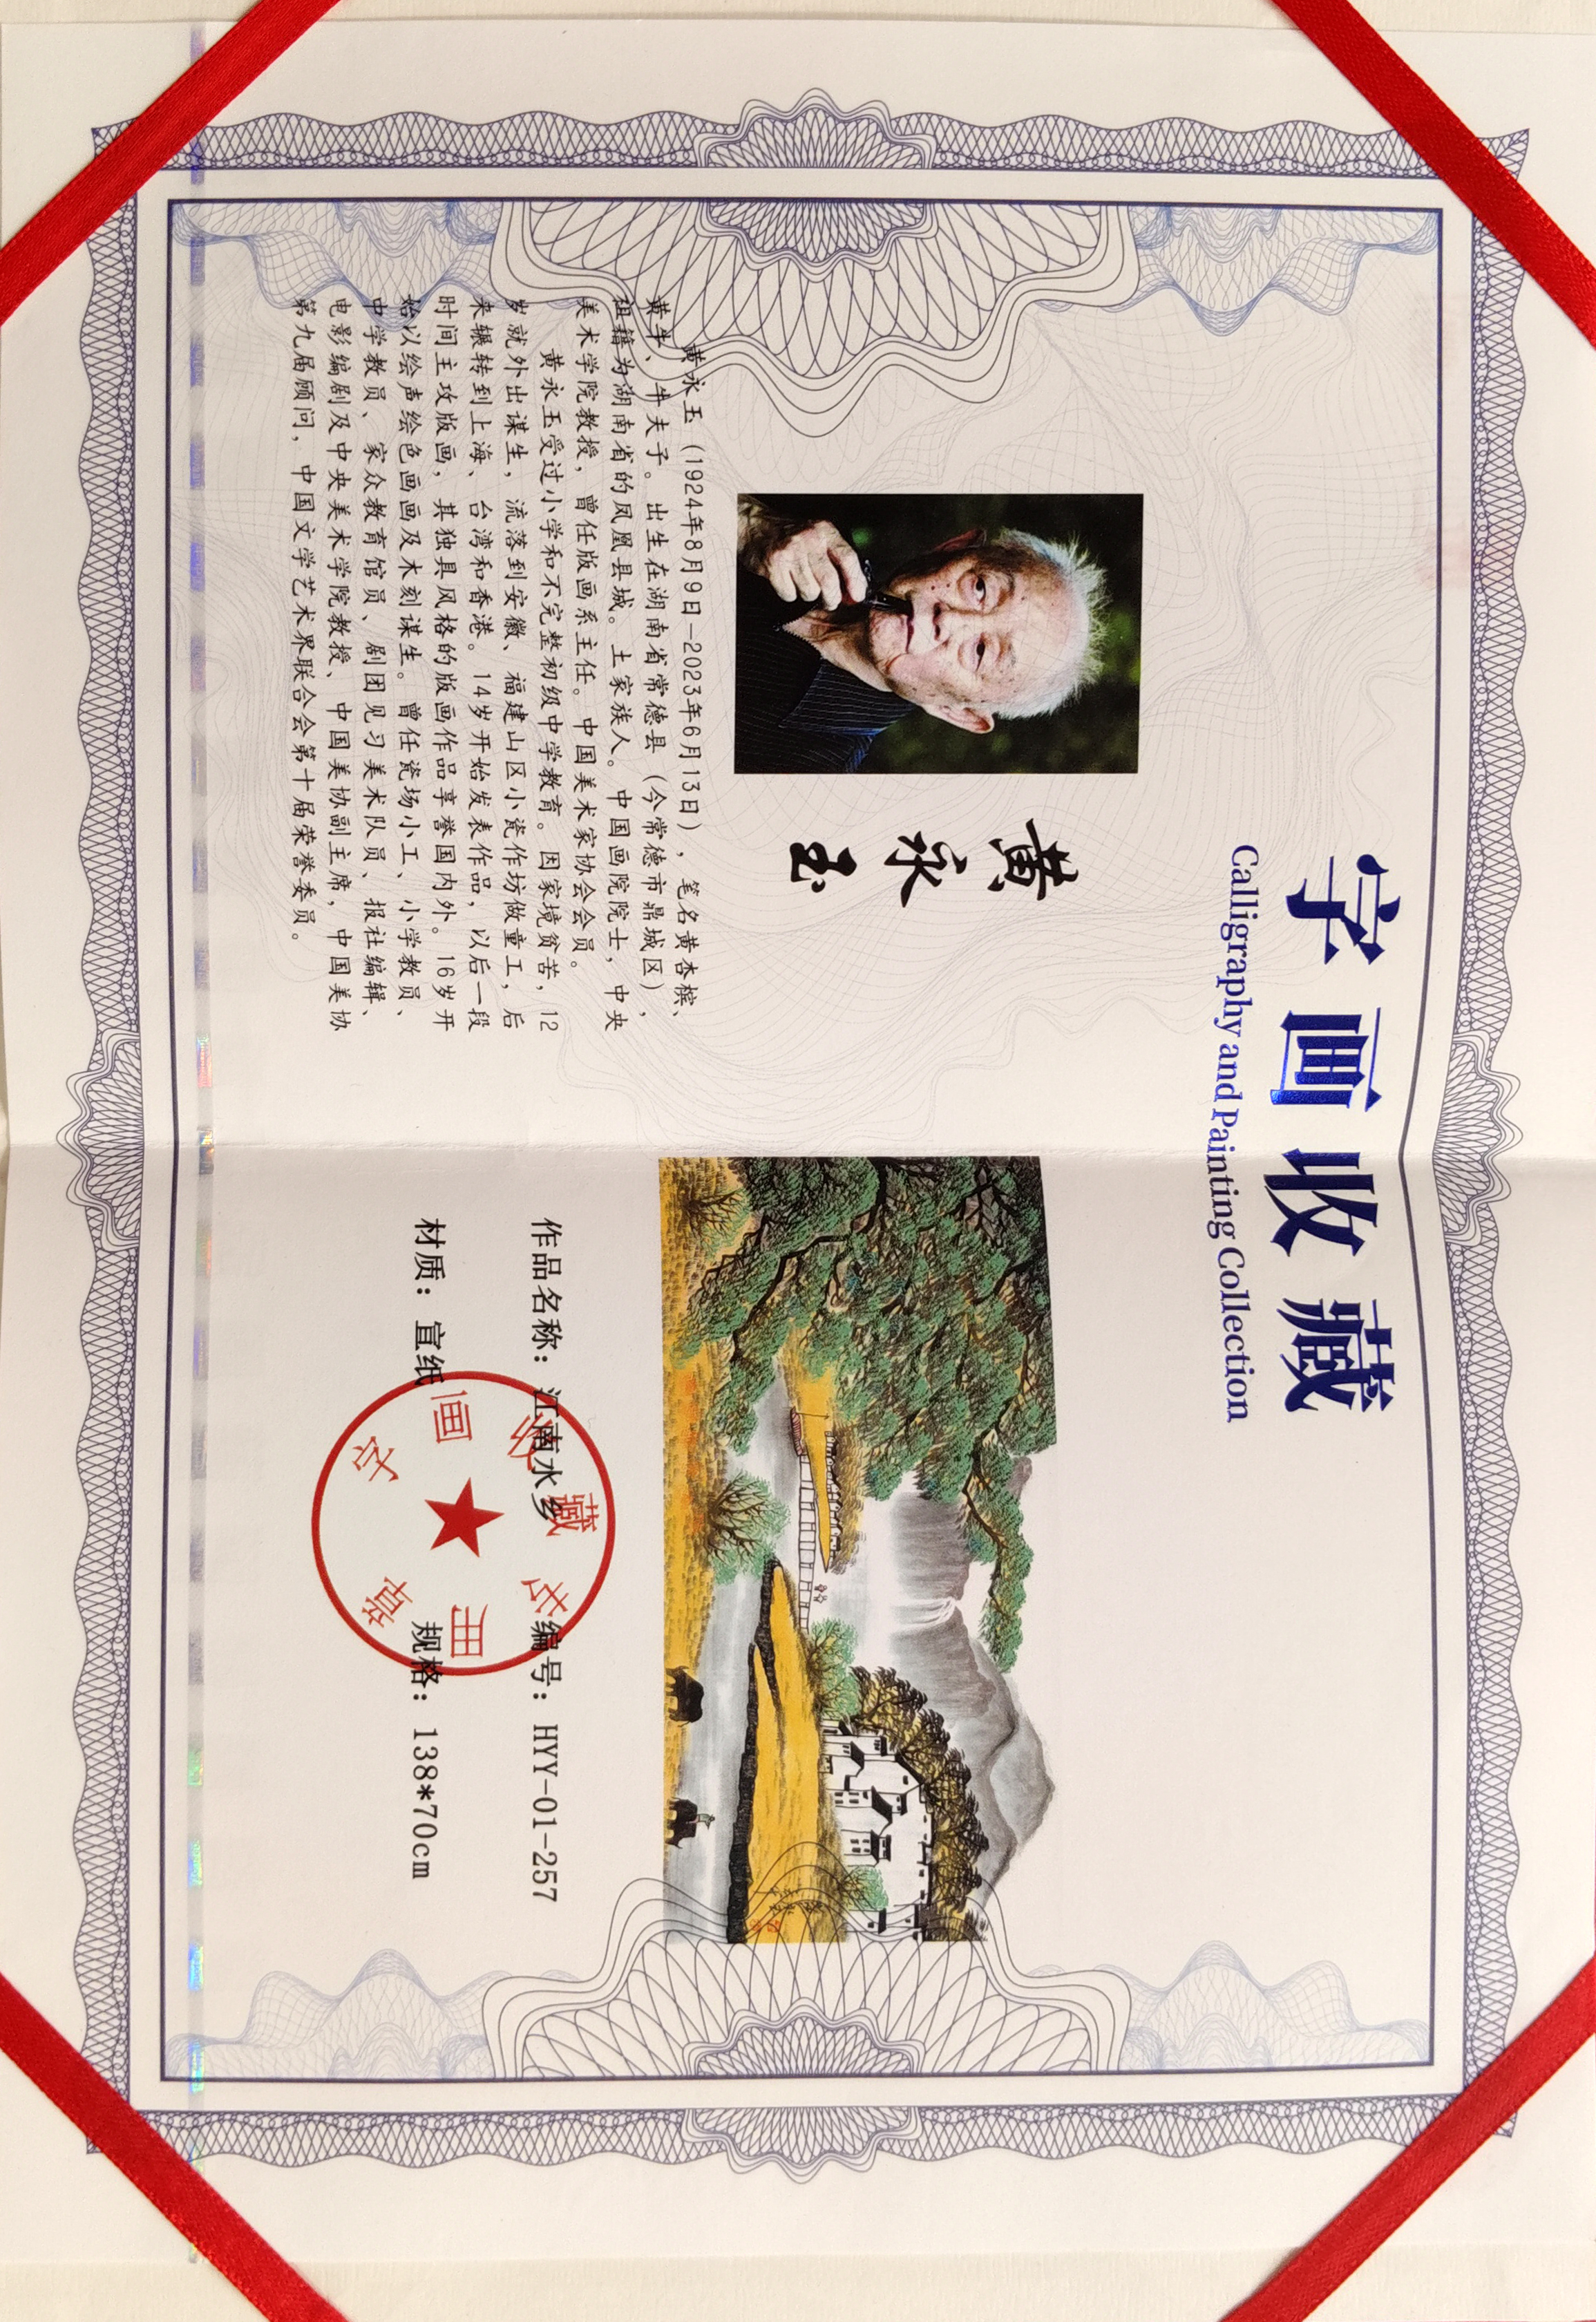 字画收藏
Calligraphy and Painting Collection
黄永玉
黄永玉（1924年8月9日-2023年6月13日），笔名黄杏槟、
黄牛、牛夫子。出生在湖南省常德县（今常德市鼎城区），
祖籍为湖南省的凤凰县城。土家族人。中国画院院士，中央
美术学院教授，曾任版画系主任。中国美术家协会会员。
黄永玉受过小学和不完整初级中学教育。因家境贫苦，12
岁就外出谋生，流落到安徽、福建山区小瓷作坊做童工，后
来辗转到上海、台湾和香港。14岁开始发表作品，以后一段
时间主攻版画，其独具风格的版画作品享誉国内外。16岁开
始以绘声绘色画画及木刻谋生。曾任瓷场小工、小学教员、
中学教员、家众教育馆员、剧团见习美术队员、报社编辑、
电影编剧及中央美术学院教授、中国美协副主席，中国美协
第九届顾问，中国文学艺术界联合会第十届荣誉委员。
作品名称：江南水乡
编号：HYY-01-257
材质：宣纸
规格：138*70cm
字画收藏专用章